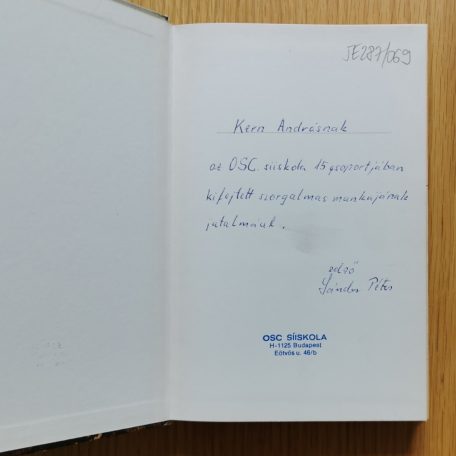 JE287/069
Kern Andrásnak
az OSC. síiskola 15 csoportjában
kifejtett szorgalmas munkájának
jutalmául.
edző
Sándor Péter
OSC SÍISKOLA
H-1125 Budapest
Eötvös u. 48/b